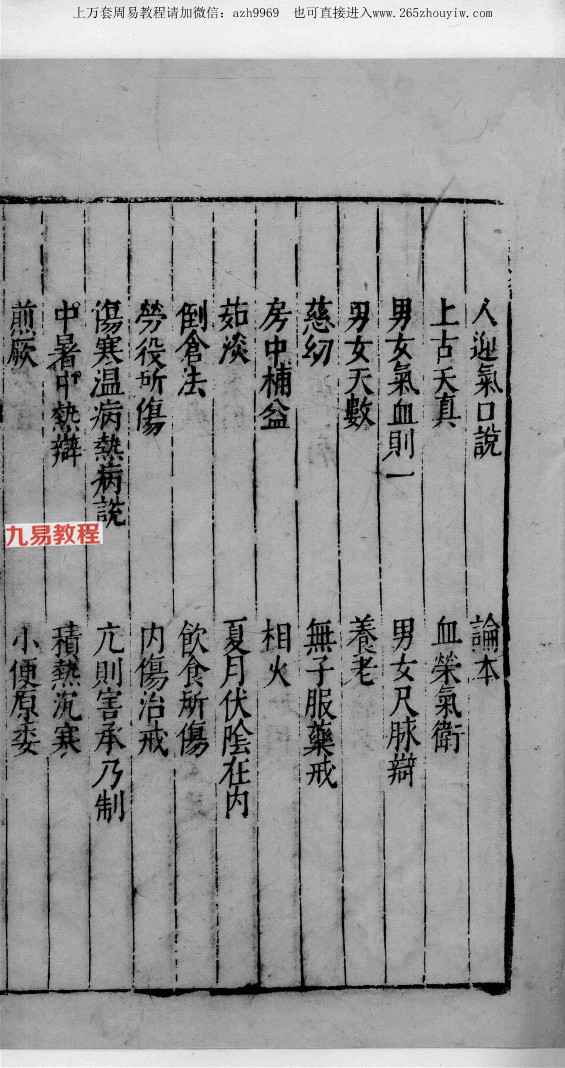 上万套周易教程请加微信：azh9969　也可直接进入www.265zhouyiw.com
人迎氣口說　論本
上古天真　血榮氣衛
男女氣血則一　男女尺脉辯
男女天數　養老
慈幼　無子服藥戒
房中補益　相火
茹淡　夏月伏陰在内
倒倉法　飲食所傷
勞役所傷　内傷治戒
傷寒温病熱病說　亢則害承乃制
中暑中熱辯　積熱沉寒
煎厥　小便原委
九易教程